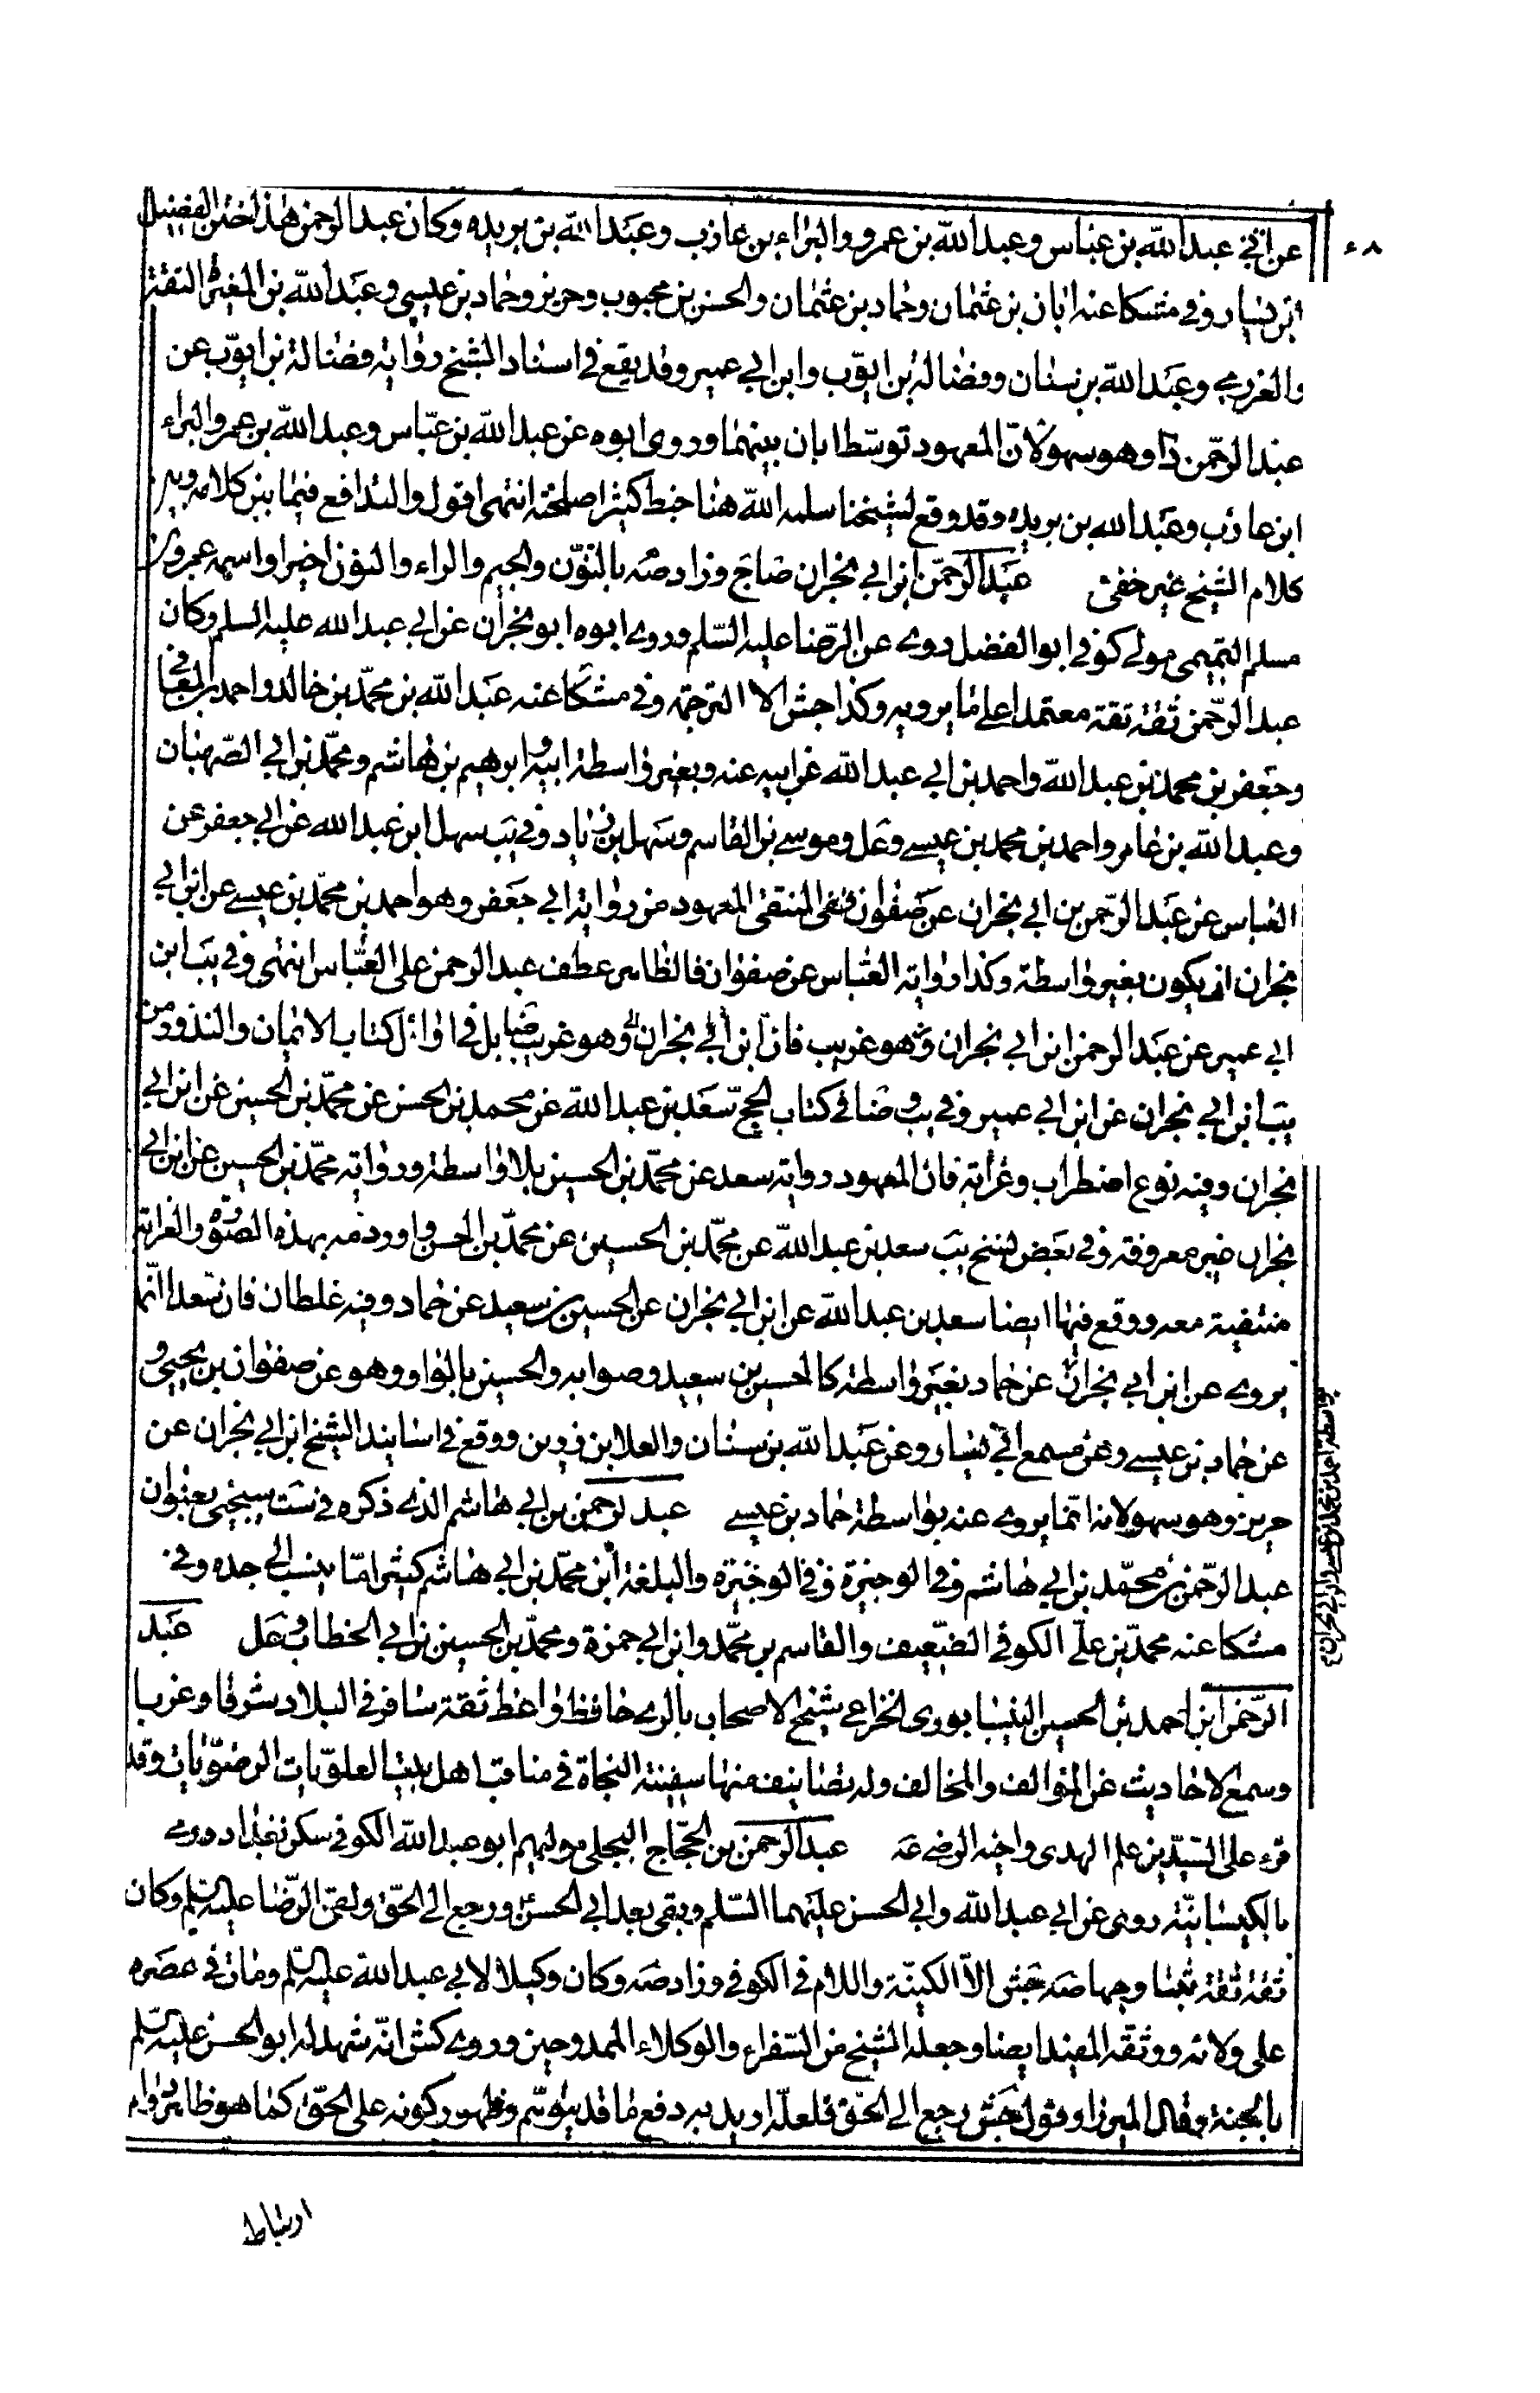 عن ابي عبد الله بن عباس وعبد الله بن عمرو والبراء بن عازب وعبد الله بن بريده وكان عبد الرحمن هذا ختن الفضيل
ابن يسار وفي مشكا عنه ابان بن عثمان وحماد بن عثمان والحسن بن محبوب وحريز وحماد بن عيسى وعبد الله بن المغيرة الثقة
والعزرمي وعبد الله بن سنان وفضالة بن ايوب وابن ابي عمير وقد يقع في اسناد الشيخ رواية فضالة بن ايوب عن
عبد الرحمن ذا وهو سهو لان المعهود توسط ابان بينهما وروى ابوه عن عبد الله بن عباس وعبد الله بن عمر والبراء
ابن عازب وعبد الله بن بريده وقد وقع لشيخنا سلمه الله هنا خبط كثير اصلحته انتهى اقول والتدافع فيما بين كلامه وبين
كلام الشيخ غير خفي عبد الرحمن ابن ابي نجران ضاجع وزاد صه بالنون والجيم والراء والنون اخيرا واسمه عمرو بن
مسلم التميمي مولى كوفي ابو الفضل روى عن الرضا عليه السلم وروى ابوه ابو نجران عن ابي عبد الله عليه السلم وكان
عبد الرحمن ثقة ثقة معتمدا على ما يرويه وكذا جش الا الترجمة وفي مشكا عنه عبد الله بن محمد بن خالد واحمد بن المعافى
وجعفر بن محمد بن عبد الله واحمد بن ابي عبد الله عن ابيه عنه وبغير واسطة ابيه وابرهيم بن هاشم ومحمد بن ابي الصهبان
وعبد الله بن عامر واحمد بن محمد بن عيسى وعل وموسى بن القاسم وسهل بن زياد وفي يب سهل ابن عبد الله عن ابي جعفر عن
العباس عن عبد الرحمن بن ابي نجران عن صفوان ففي المنتقى المعهود من رواية ابي جعفر وهو احمد بن محمد بن عيسى عن ابن ابي
نجران ان يكون بغير واسطة وكذا رواية العباس عن صفوان فالظاهر عطف عبد الرحمن على العباس انتهى وفي يب ابن
ابي عمير عن عبد الرحمن ابن ابي نجران وهو غريب فان ابن ابي نجران وهو غريب بل في اوائل كتاب الايمان والنذور من
يب ابن ابي نجران عن ابن ابي عمير وفي يب وصا في كتاب الحج سعد بن عبد الله عن محمد بن الحسن عن محمد بن الحسين عن ابن ابي
نجران وفيه نوع اضطراب وغرابة فان المعهود رواية سعد عن محمد بن الحسين بلا واسطة ورواية محمد بن الحسين عن ابن ابي
نجران غير معروفة وفي بعض نسخ يب سعد بن عبد الله عن محمد بن الحسين عن محمد بن الحسن واورد فيه بهذه الصورة والغرابة
منتفية معه ووقع فيها ايضا سعد بن عبد الله عن ابن ابي نجران عن الحسين بن سعيد عن حماد وفيه غلطان فان سعدا انما
يروي عن ابن ابي نجران عن حماد بغير واسطة كالحسين بن سعيد وصوابه والحسين بالواو وهو عن صفوان بن يحيى و
عن حماد بن عيسى وعن مسمع ابي يسار وعن عبد الله بن سنان والعلا بن رزين ووقع في اسانيد الشيخ ابن ابي نجران عن
حريز وهو سهو لانه انما يروي عنه بواسطة حماد بن عيسى عبد الرحمن بن ابي هاشم الذي ذكره في ست سيجئ بعنوان
عبد الرحمن بن محمد بن ابي هاشم وفي الوجيزة وفي الوجيزة والبلغة ابن محمد بن ابي هاشم كثيرا ما ينسب الى جده وفي
مشكا عنه محمد بن علي الكوفي الضعيف والقاسم بن محمد وابن ابي حمزة ومحمد بن الحسين بن ابي الخطاب وعل عبد
الرحمن ابن احمد بن الحسين النيسابوري الخزاعي شيخ الاصحاب بالري حافظ واعظ ثقة سافر في البلاد شرقا وغربا
وسمع الاحاديث عن المؤالف والمخالف وله تصانيف منها سفينة النجاة في مناقب اهل بيت العلويات الرضويات وقد
قرء على السيدين علم الهدى واخيه الرضي عه عبد الرحمن بن الحجاج البجلي موليهم ابو عبد الله الكوفي سكن بغداد ورمي
بالكيسانية روى عن ابي عبد الله وابي الحسن عليهما السلم وبقي بعد ابي الحسن ورجع الى الحق ولقي الرضا عليه السلم وكان
ثقة ثقة ثبتا وجها صه جش الا الكنية واللام في الكوفي وزاد صه وكان وكيلا لابي عبد الله عليه السلم ومات في عصره
على ولائه ووثقه المفيد ايضا وجعله الشيخ من السفراء والوكلاء الممدوحين وروى كش انه شهد له ابو الحسن عليه السلم
بالجنة وقال الميرزا وقول جش رجع الى الحق فلعله اريد به دفع ما قد يتوهم وظهور كونه على الحق كما هو ظاهر
ارتباط